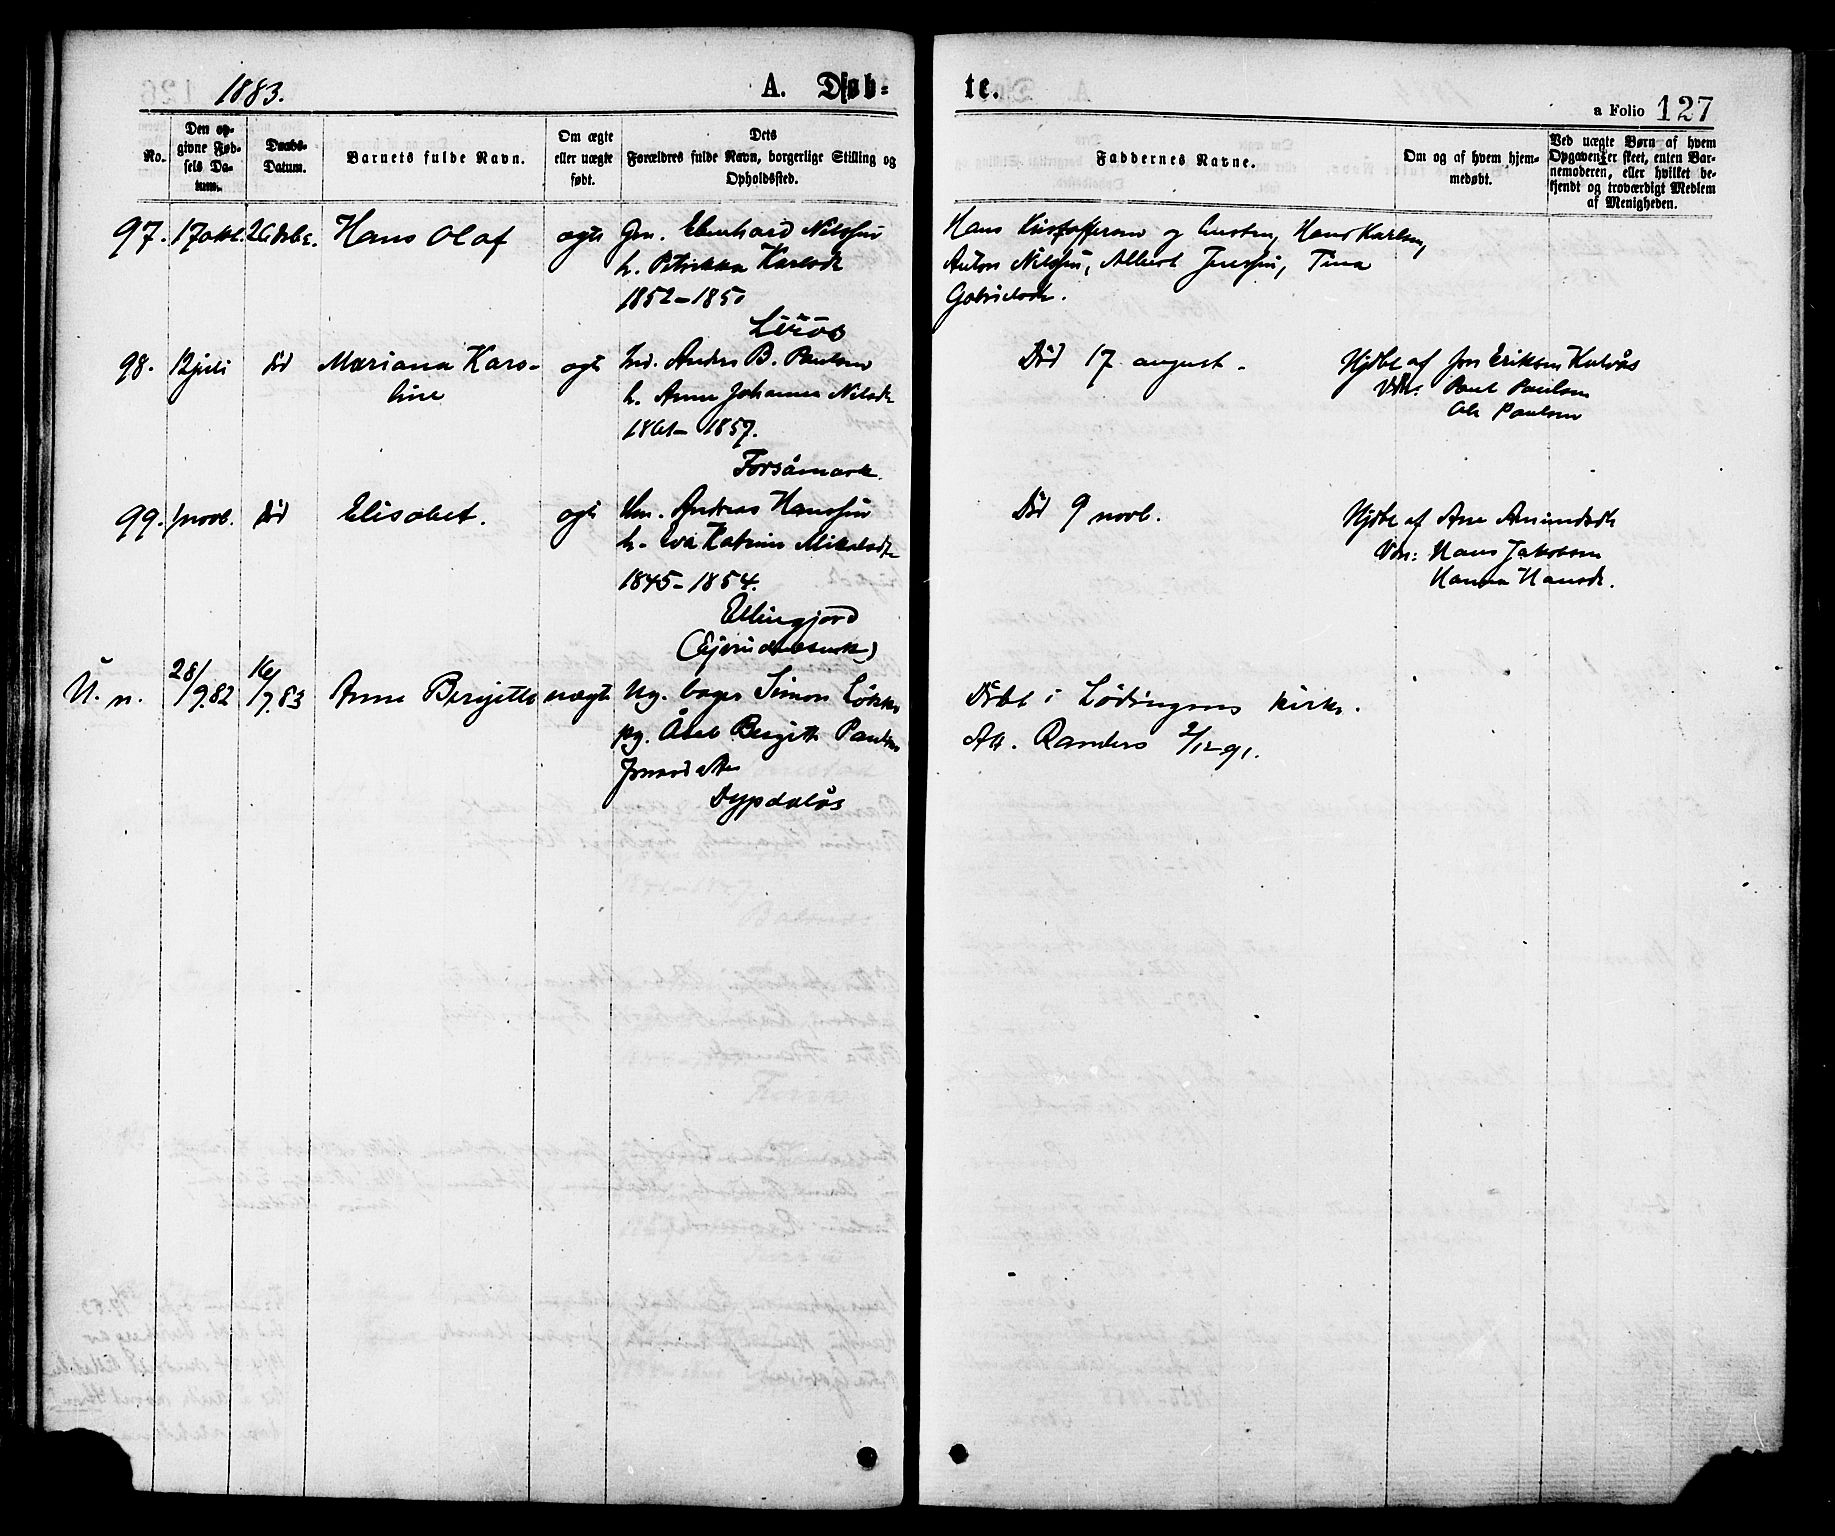 1883.
A. Døb-
te.
a Folio 127
No.
Den op-
givne Fød-
sels Da-
tum.
Daabs-
Datum.
Barnets fulde Navn.
Om ægte
eller uægte
født.
Dets
Forældres fulde Navn, borgerlige Stilling og
Opholdssted.
Faddernes Navne.
Om og af hvem hjem-
medøbt.
Ved uægte Børn af hvem
Opgaven er skeet, enten Bar-
nemoderen, eller hvilket be-
kjendt og troværdigt Medlem
af Menigheden.
97. 17 okt. 26 Hans Olaf ægte Gm. Eberhard Nilssen
h. Petrikka Karlsdt
1852-1850
Hans Kristoffersen og hustru, Hans Karlsen,
Anton Nilssen, Albert Jenssen, Tina
Gabrielsdt.
98. 12 juli død Mariana Karo-
line
ægte Ind. Anders B. Paulsen
h. Anna Johanna Nilsdt
1861-1857.
Forsåmark.
Död 17 august.
Hjdbt af Jon Eriksen Kulvås
Vdn: Paul Paulsen
Ole Paulsen
99. novb. död Elisabet. ægte Hm. Andreas Hanssen
h. Eva Katrine Mikalsdt
1845-1854.
Ellingjord
Död 9 novb.
Hjdbt af Ane Amundsdt
Vdn: Hans Jakobsen
Hanna Hansdt.
U. n. 28/9.82 16/7.83 Anne Bergitte uægte Ug. bager Simon
pg. Åbel Bergitte
Dypdalås
Döbt i Lødingens kirke.
Att. Randers 2/12 91.